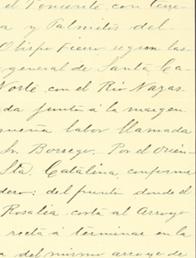 el Poniente, con terre
a y Palmitos del
Obispo Fierro segun las
general de Santa Ca
Norte con el Rio Nazas
da junto á la margen
nueva labor llamada
Sn. Borrego. Por el Orien
Sta. Catalina, conforme
dero; del punto donde el
Rosalia corta al Arroyo
recta á terminar en la
a del mismo arroyo de